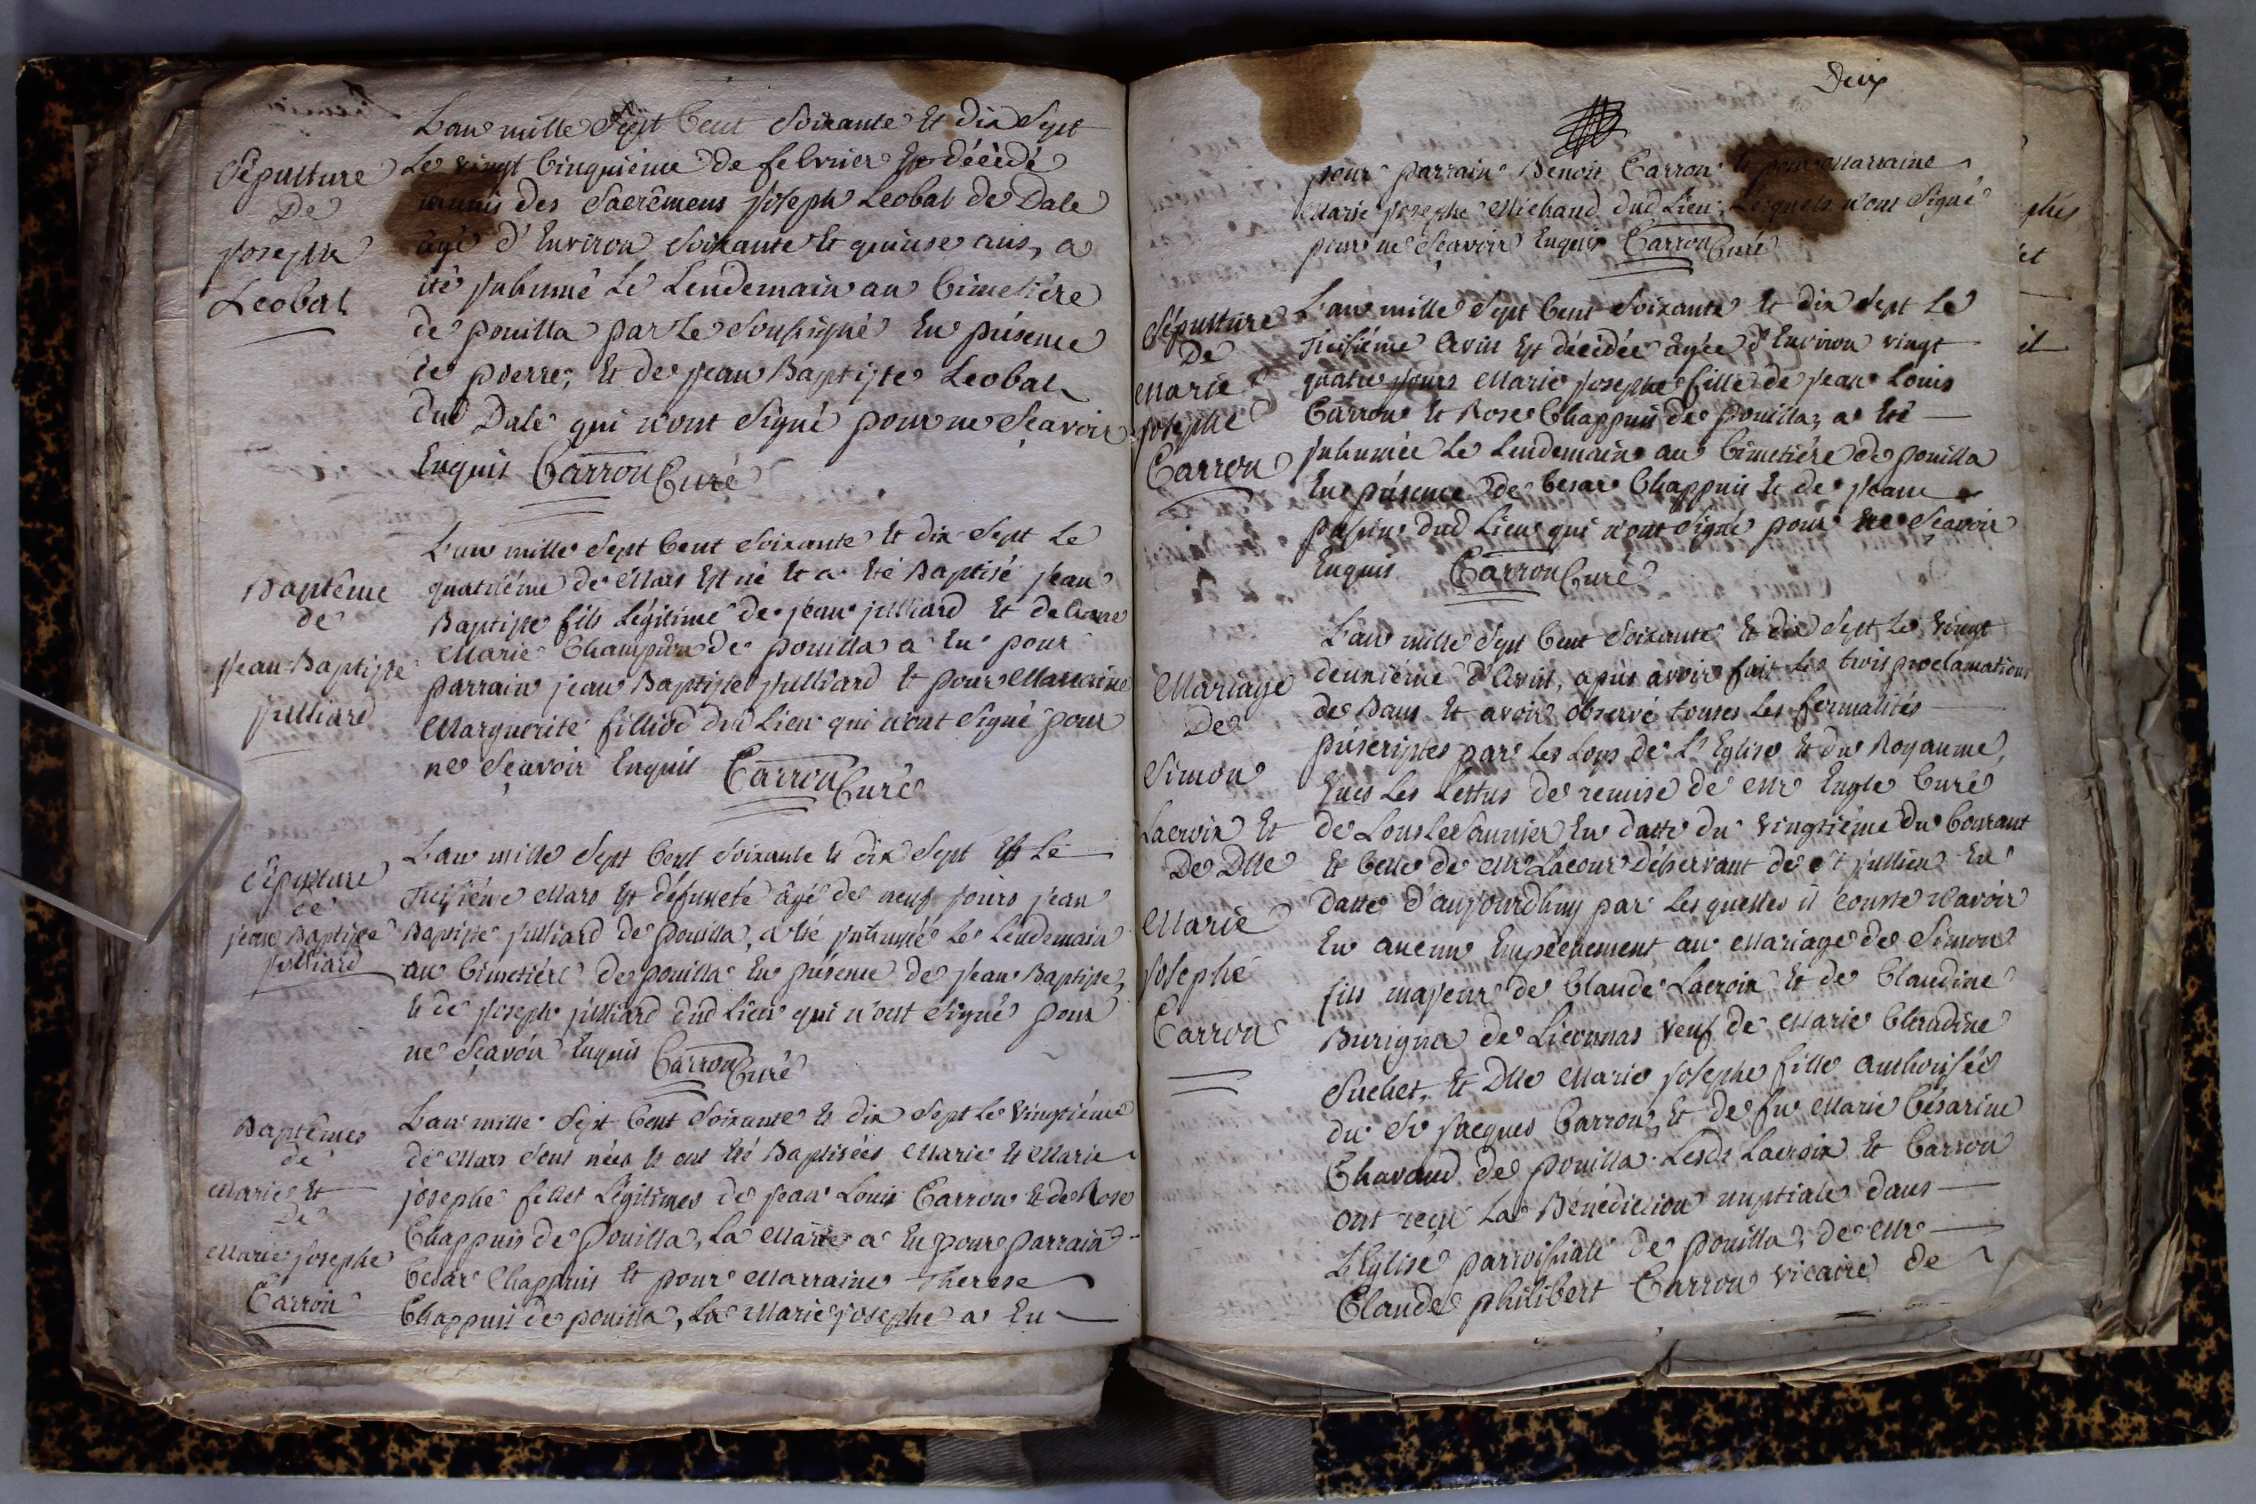 Sépulture
De
Joseph
Leobal
L'an mille Sept Cent Soixante Et dix Sept
Le vingt Cinquième de febvrier Est décédé
munis des Sacrêmens Joseph Leobal de Dale
âgé d'Environ Soixante Et quinse ans, a
été Inhumé Le Lendemain au Cimetière
de pouilla par Le Soussigné En présence
de pierre, Et de Jean Baptiste Leobal
Dud Dale qui n'ont Signé pour ne Sçavoir
Enquis Carron Curé
Baptême
de
Jean Baptiste
Julliard
L'an mille Sept Cent Soixante Et dix Sept Le
quatrième de Mars Est né Et a été Baptisé Jean
Baptiste fils Légitime de Jean julliard Et de
Marie Champion de pouilla a Eu pour
parrain jean Baptiste Julliard Et pour Marraine
Marguerite fillod dud Lieu qui n'ont Signé pour
ne Sçavoir Enquis Carron Curé
Sépulture
de
jean Baptiste
Julliard
L'an mille Sept Cent Soixante Et dix Sept Est Le
Treisième Mars Est défuncté âgé de neuf Jours jean
Baptiste Julliard de pouilla, a été Inhumé Le Lendemain
au Cimetière de pouilla En présence de Jean Baptiste,
Et de Joseph julliard dud Lieu qui n'ont Signé pour
ne Sçavoir Enquis Carron Curé
Baptêmes
de
Marie Et
De
Marie Josephe
Carron
L'an mille Sept Cent Soixante Et dix Sept Le vingtième
de Mars Sont nées Et ont été Baptisées Marie Et Marie
josephe filles Légitimes de Jean Louis Carron Et de Rose
Chappuis de Pouilla, La Marie a Eu pour parrain
Cesar Chappuis Et pour Marraine Therese
Chappuis de pouilla, La Marie josephe a Eu
Deux
pour parrain Benoit Carron Et pour Marraine
Marie Josephe Michaud dud Lieu, Lesquels n'ont Signé
pour ne Sçavoir Enquis Carron Curé
Sépulture
De
Marie
Josephe
Carron
L'an mille Sept Cent Soixante Et dix Sept Le
Treisième Avril Est décédée âgée d'Environ vingt
quatre Jours Marie Josephe fille de Jean Louis
Carron Et Rose Chappuis de pouilla, a été
Inhumée Le Lendemain au Cimetière de pouilla
En présence de Cesar Chappuis Et de Jean
dud Lieu qui n'ont Signé pour ne Sçavoir
Enquis Carron Curé
Mariage
De
Simon
Lacroix Et
De Dlle
Marie
Josephe
Carron
L'an mille Sept Cent Soixante Et dix Sept, Le vingt
deuxième d'Avril, après avoir fait Les trois proclamations
de Bans Et avoir observé toutes Les formalités
préscriptes par Les Loys de L'Eglise Et du Royaume,
Vues Les Lettres de remise de Mr Engle Curé
de Lons Le Saunier En datte du vingtième du Courant
Et Celle de Mr Lacour Déservant de St Jullien En
datte d'aujourdhuy par Les quelles il conste n'avoir
Eu aucun Empêchement au Mariage de Simon
fils majeur de Claude Lacroix Et de Claudine
de Liconnas veuf de Marie Claudine
Suchet, Et Dlle Marie Josephe fille authorisée
du Sr Jacques Carron, Et de fue Marie Césarine
Chavaud de pouilla. Lesdts Lacroix Et Carron
ont reçu La Bénédiction nuptiale dans
L'Eglise parroissiale de pouilla, de Mr
Claude philibert Carron vicaire de